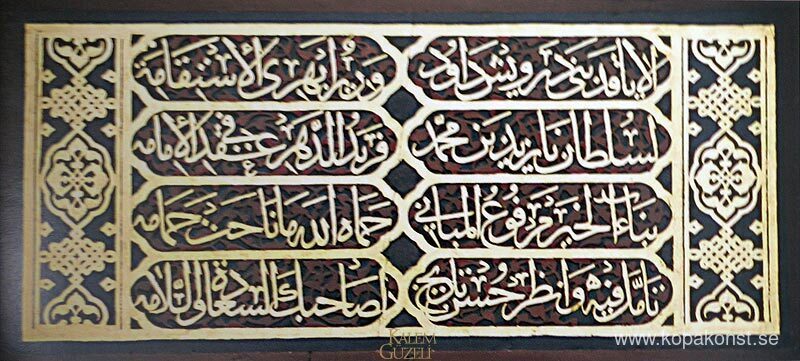 قد بنى درويش داود وزير الاستقامة
لسلطان بايزيد بن محمد فريد الدهر في عقد الإمامه
بناء الخير مرفوع المباني حماه الله ما ناحت حمامه
تأمل فيه وانظر حسن تاريخ لصاحبك السعادة والسلامه
KALEM GÜZELİ
www.kopakonst.se